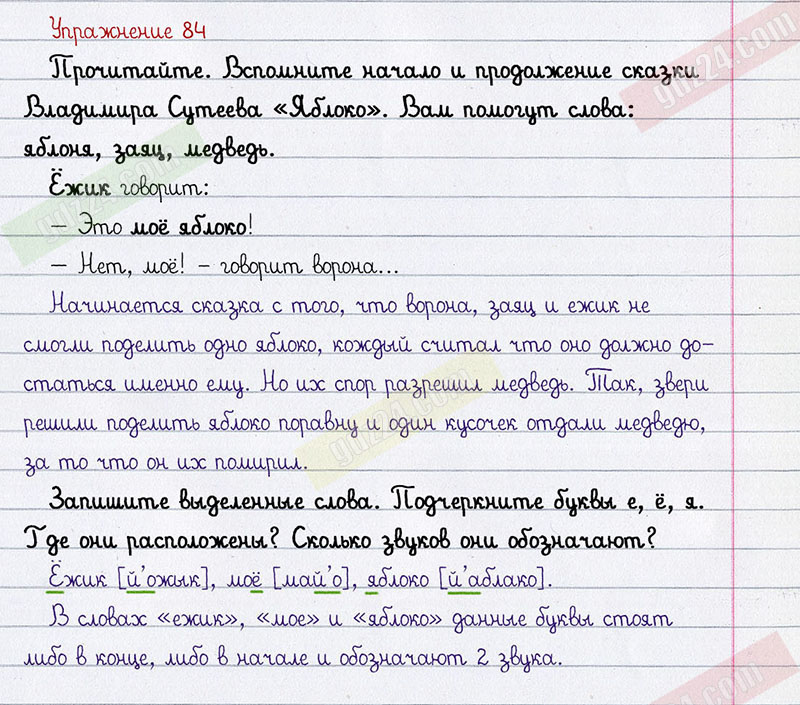 Упражнение 84
Прочитайте. Вспомните начало и продолжение сказки
Владимира Сутеева «Яблоко». Вам помогут слова:
яблоня, заяц, медведь.
Ёжик говорит:
– Это моё яблоко!
– Нет, моё! – говорит ворона...
Начинается сказка с того, что ворона, заяц и ежик не
смогли поделить одно яблоко, кождый считал что оно должно до-
статься именно ему. Но их спор разрешил медведь. Так, звери
решили поделить яблоко поравну и один кусочек отдали медведю,
за то что он их помирил.
Запишите выделенные слова. Подчеркните буквы е, ё, я.
Где они расположены? Сколько звуков они обозначают?
Ёжик [й'ожык], моё [май'о], яблоко [й'аблако].
В словах «ежик», «мое» и «яблоко» данные буквы стоят
либо в конце, либо в начале и обозначают 2 звука.
gdz24.com
gdz24.com
gdz24.com
gdz24.com